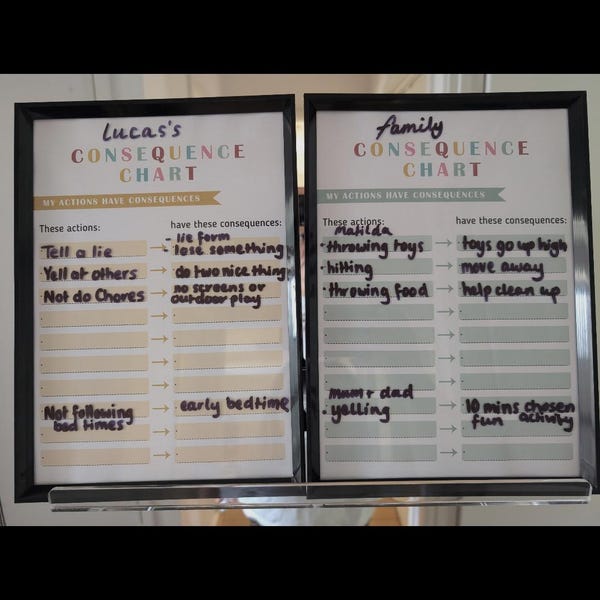 Lucas's
CONSEQUENCE
CHART
MY ACTIONS HAVE CONSEQUENCES
These actions: have these consequences:
- lie form
Tell a lie → - lose something
Yell at others → do two nice thing
Not do Chores → no screens or
outdoor play
Not following → early bedtime
bed times
family
CONSEQUENCE
CHART
MY ACTIONS HAVE CONSEQUENCES
These actions: have these consequences:
Matilda
· throwing toys → toys go up high
· hitting → move away
· throwing food → help clean up
Mum + dad
· yelling → 10 mins chosen
fun activity